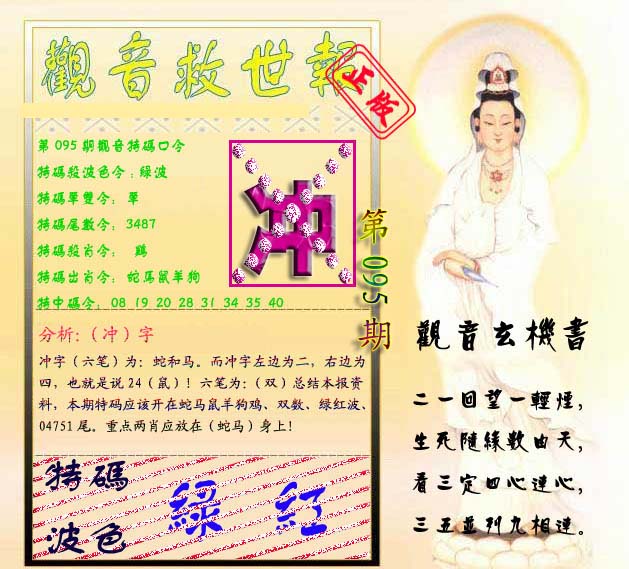 觀音救世報
正版
第095期觀音特碼口令
特碼殺波色令：綠波
特碼單雙令： 單
特碼尾數令： 3487
特碼殺肖令： 鷄
特碼出肖令： 蛇馬鼠羊狗
特中碼令： 08 19 20 28 31 34 35 40
冲
第095期
分析:（冲）字
冲字（六笔）为：蛇和马。而冲字左边为二，右边为
四，也就是说24（鼠）！六笔为：（双）总结本报资
料，本期特码应该开在蛇马鼠羊狗鸡、双数、绿红波、
04751尾。重点两肖应放在（蛇马）身上！
特碼
波色
綠 紅
觀音玄機書
二一回望一輕煙，
生死隨緣數由天，
看三定四心連心，
三五並列九相連。